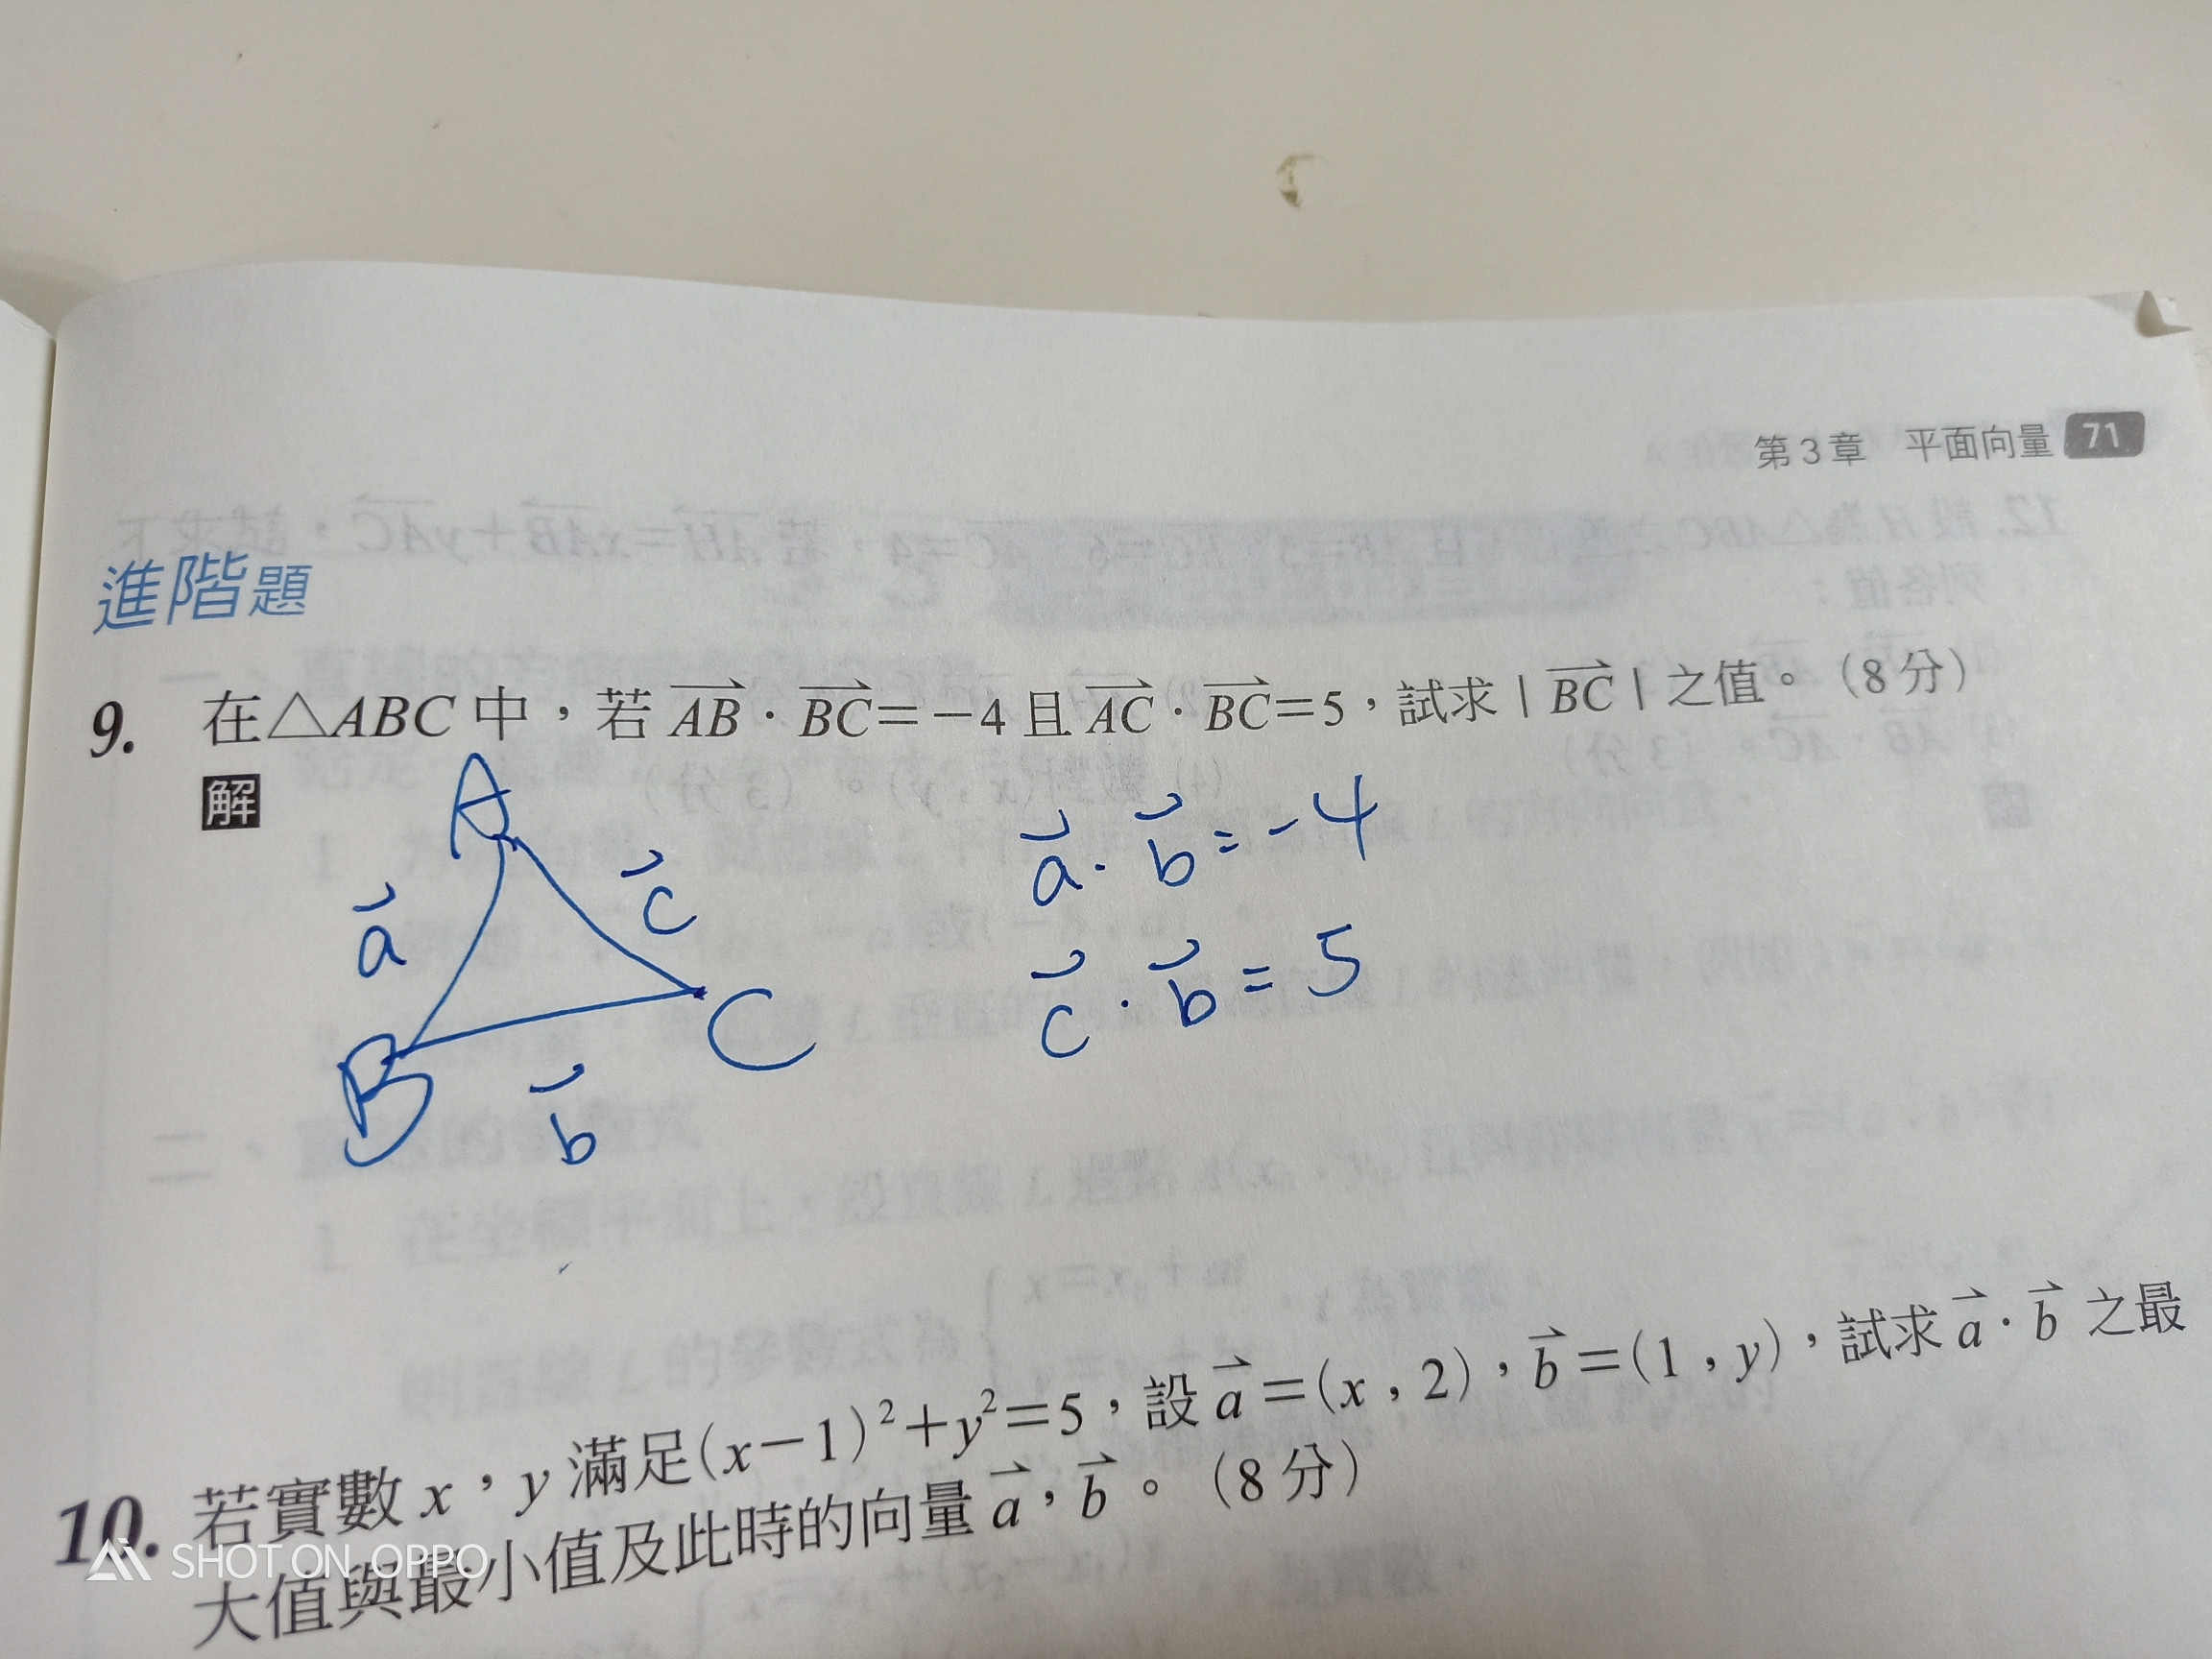 第3章 平面向量 71
進階題
9. 在△ABC中，若 $\overrightarrow{AB}$·$\overrightarrow{BC}$=-4且 $\overrightarrow{AC}$·$\overrightarrow{BC}$=5，試求|$\overrightarrow{BC}$|之值。（8分）
解
A
$\vec{a}$ $\vec{c}$
B C
$\vec{b}$
$\vec{a}$·$\vec{b}$=-4
$\vec{c}$·$\vec{b}$=5
10. 若實數x，y滿足(x-1)²+y²=5，設$\vec{a}$=(x，2)，$\vec{b}$=(1，y)，試求$\vec{a}$·$\vec{b}$之最
大值與最小值及此時的向量$\vec{a}$，$\vec{b}$。（8分）
SHOT ON OPPO